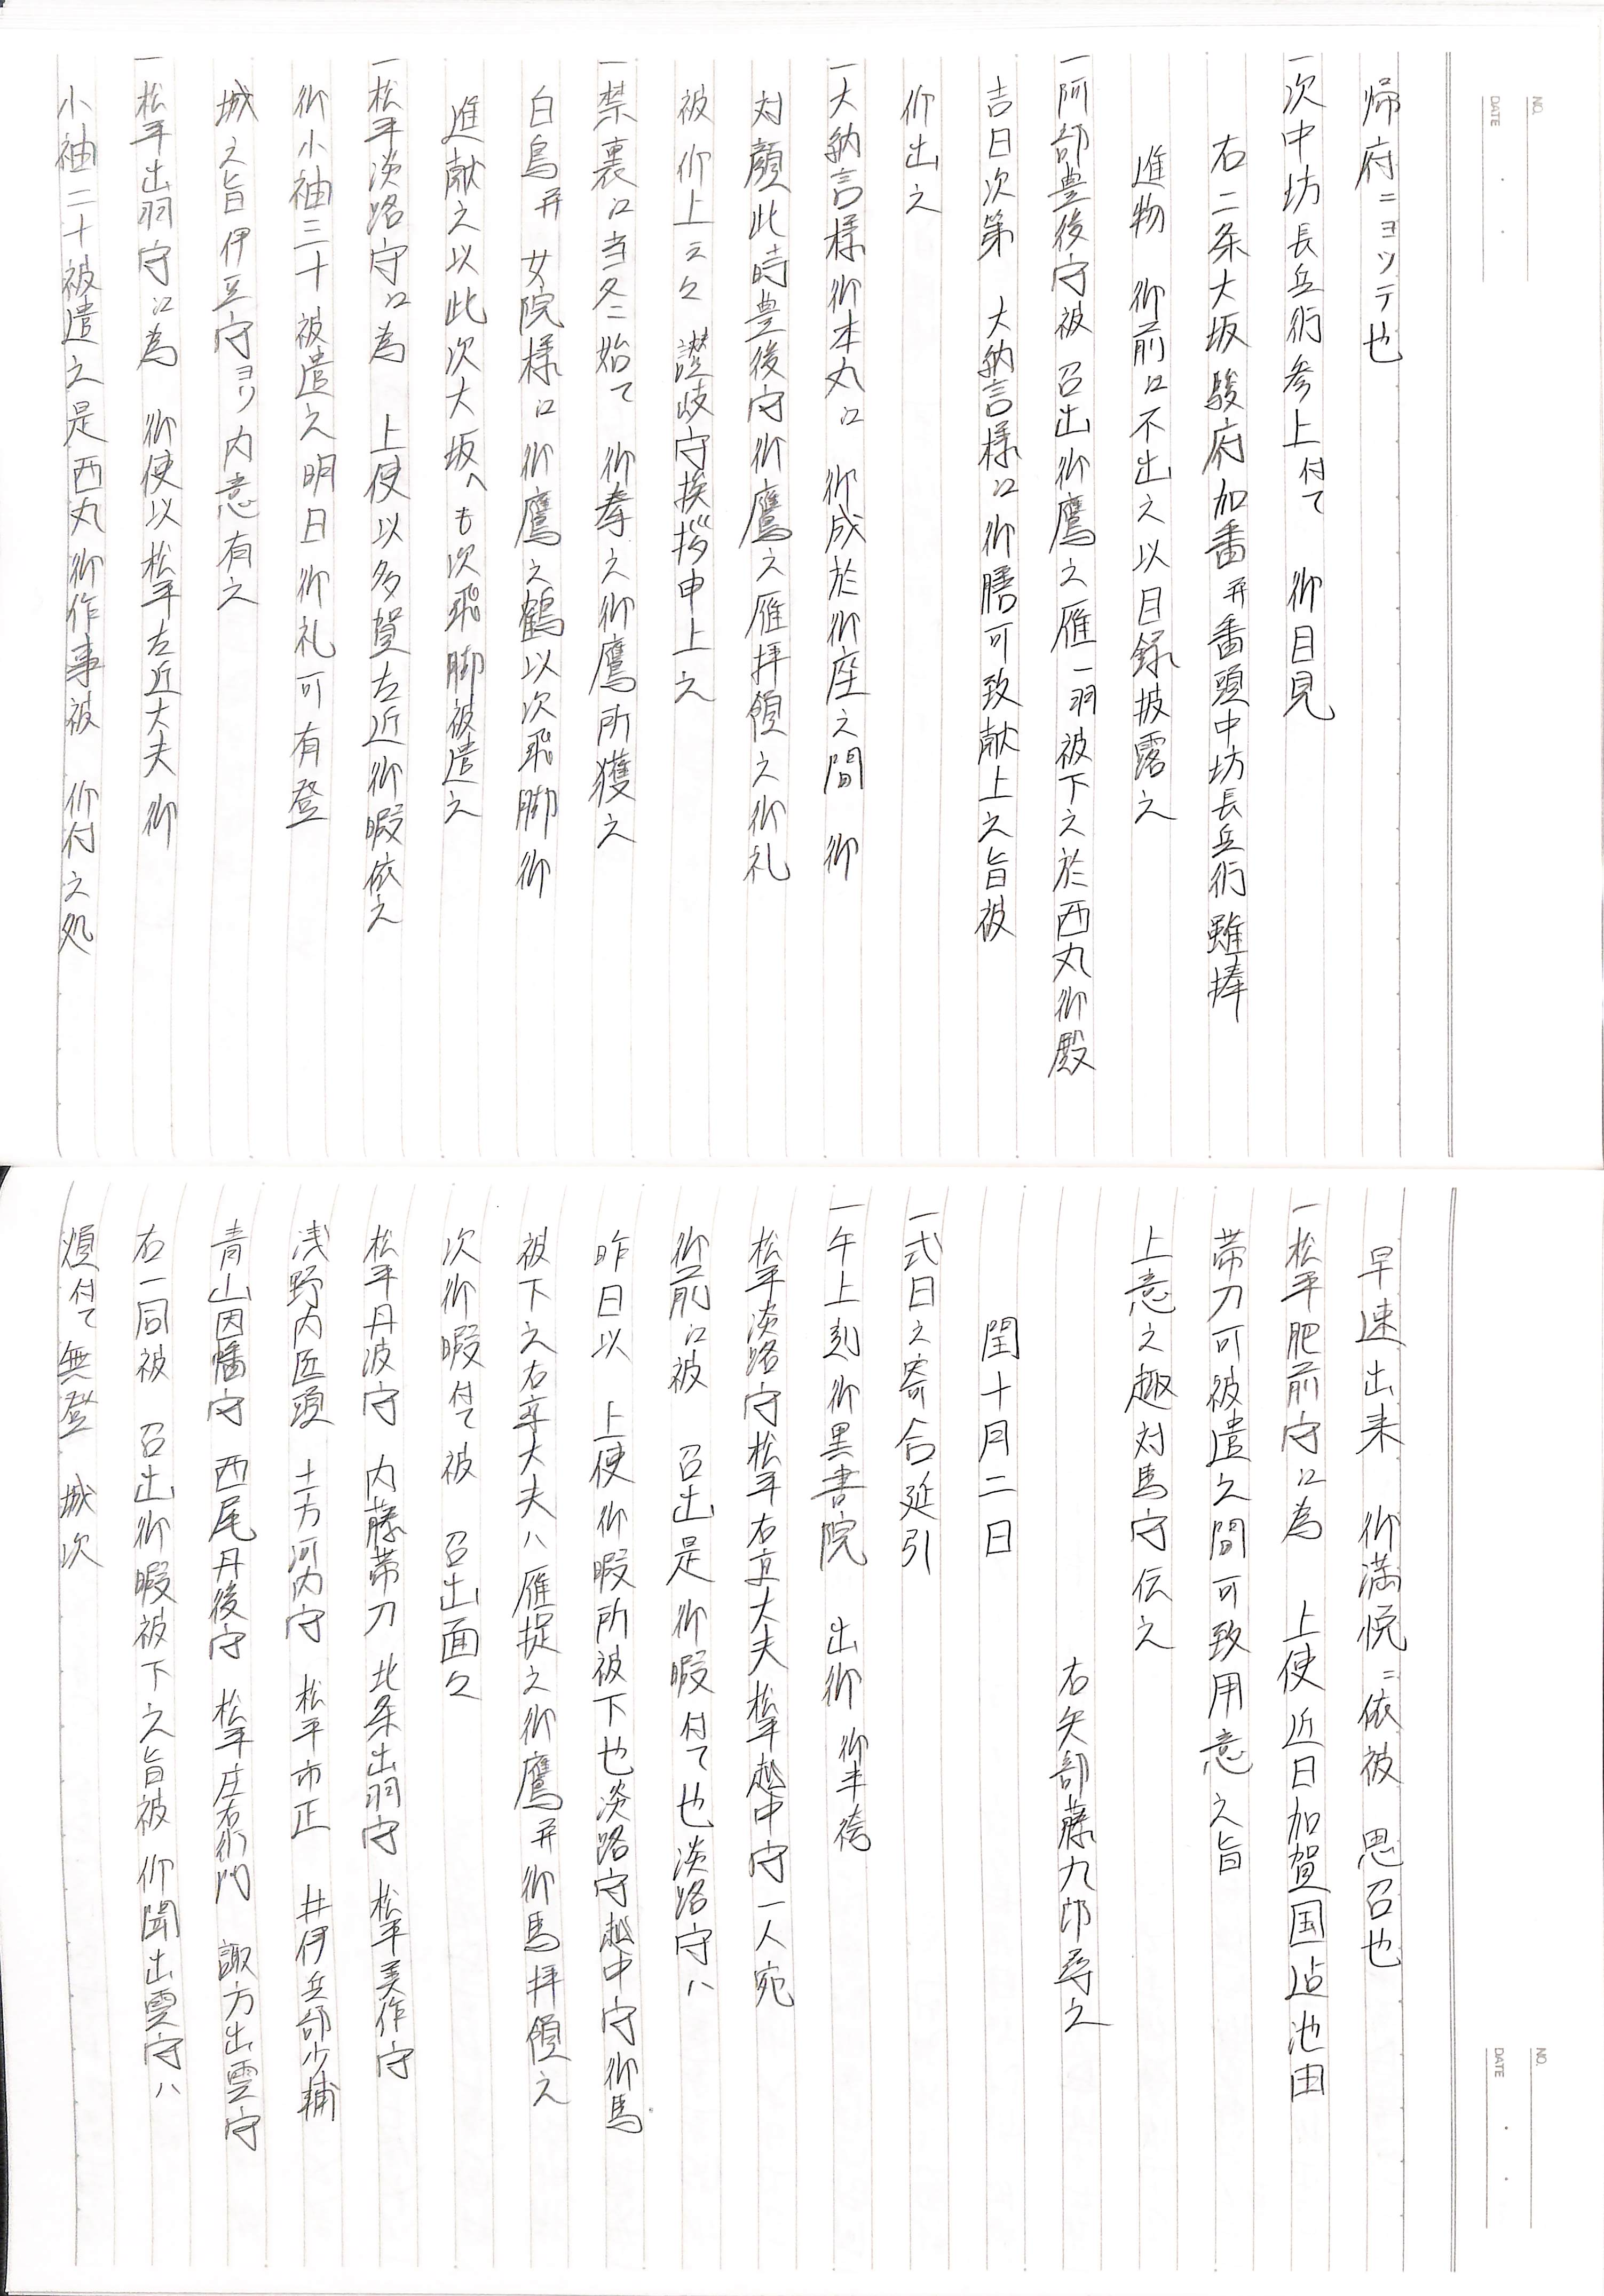 NO.
DATE
帰府ニヨツテ也
一次中坊長兵衛参上付て　御目見
右二条大坂駿府加番并番頭中坊長兵衛雖捧
進物　御前江不出之以目録披露之
一阿部豊後守被　召出御鷹之雁一羽被下之於西丸御殿
吉日次第　大納言様江御膳可致献上之旨被
仰出之
一大納言様御本丸江　御成於御座之間　御
対顔此時豊後守御鷹之雁拝領之御礼
被　仰上云々　讃岐守挨拶申上之
一禁裏江当冬ニ始て　御拳之御鷹所獲之
白鳥并　女院様江　御鷹之鶴以次飛脚　御
進献之以此次大坂へも次飛脚被遣之
一松平淡路守江為　上使以多賀左近御暇依之
御小袖三十被遣之明日御礼可有登
城之旨伊豆守ヨリ内意有之
一松平出羽守江為　御使以松平左近大夫　御
小袖二十被遣之是西丸御作事被　仰付之処
NO.
DATE
早速出来　御満悦ニ依被　思召也
一松平肥前守江為　上使近日加賀国迠池田
帯刀可被遣之間可致用意之旨
上意之趣対馬守伝之
右矢部藤九郎尋之
閏十月二日
一式日之寄合延引
一午上刻御黒書院　出御　御半袴
松平淡路守松平右京大夫松平越中守一人宛
御前江被　召出是御暇付て也淡路守ハ
昨日以　上使御暇所被下也淡路守越中守御馬
被下之右京大夫ハ雁捉之御鷹并御馬拝領之
次御暇付て被　召出面々
松平丹波守　内藤帯刀　北条出羽守　松平美作守
浅野内匠頭　土方河内守　松平市正　井伊兵部少輔
青山因幡守　西尾丹後守　松平庄右衛門　諏方出雲守
右一同被　召出御暇被下之旨被　仰聞出雲守ハ
煩付て無登　城次